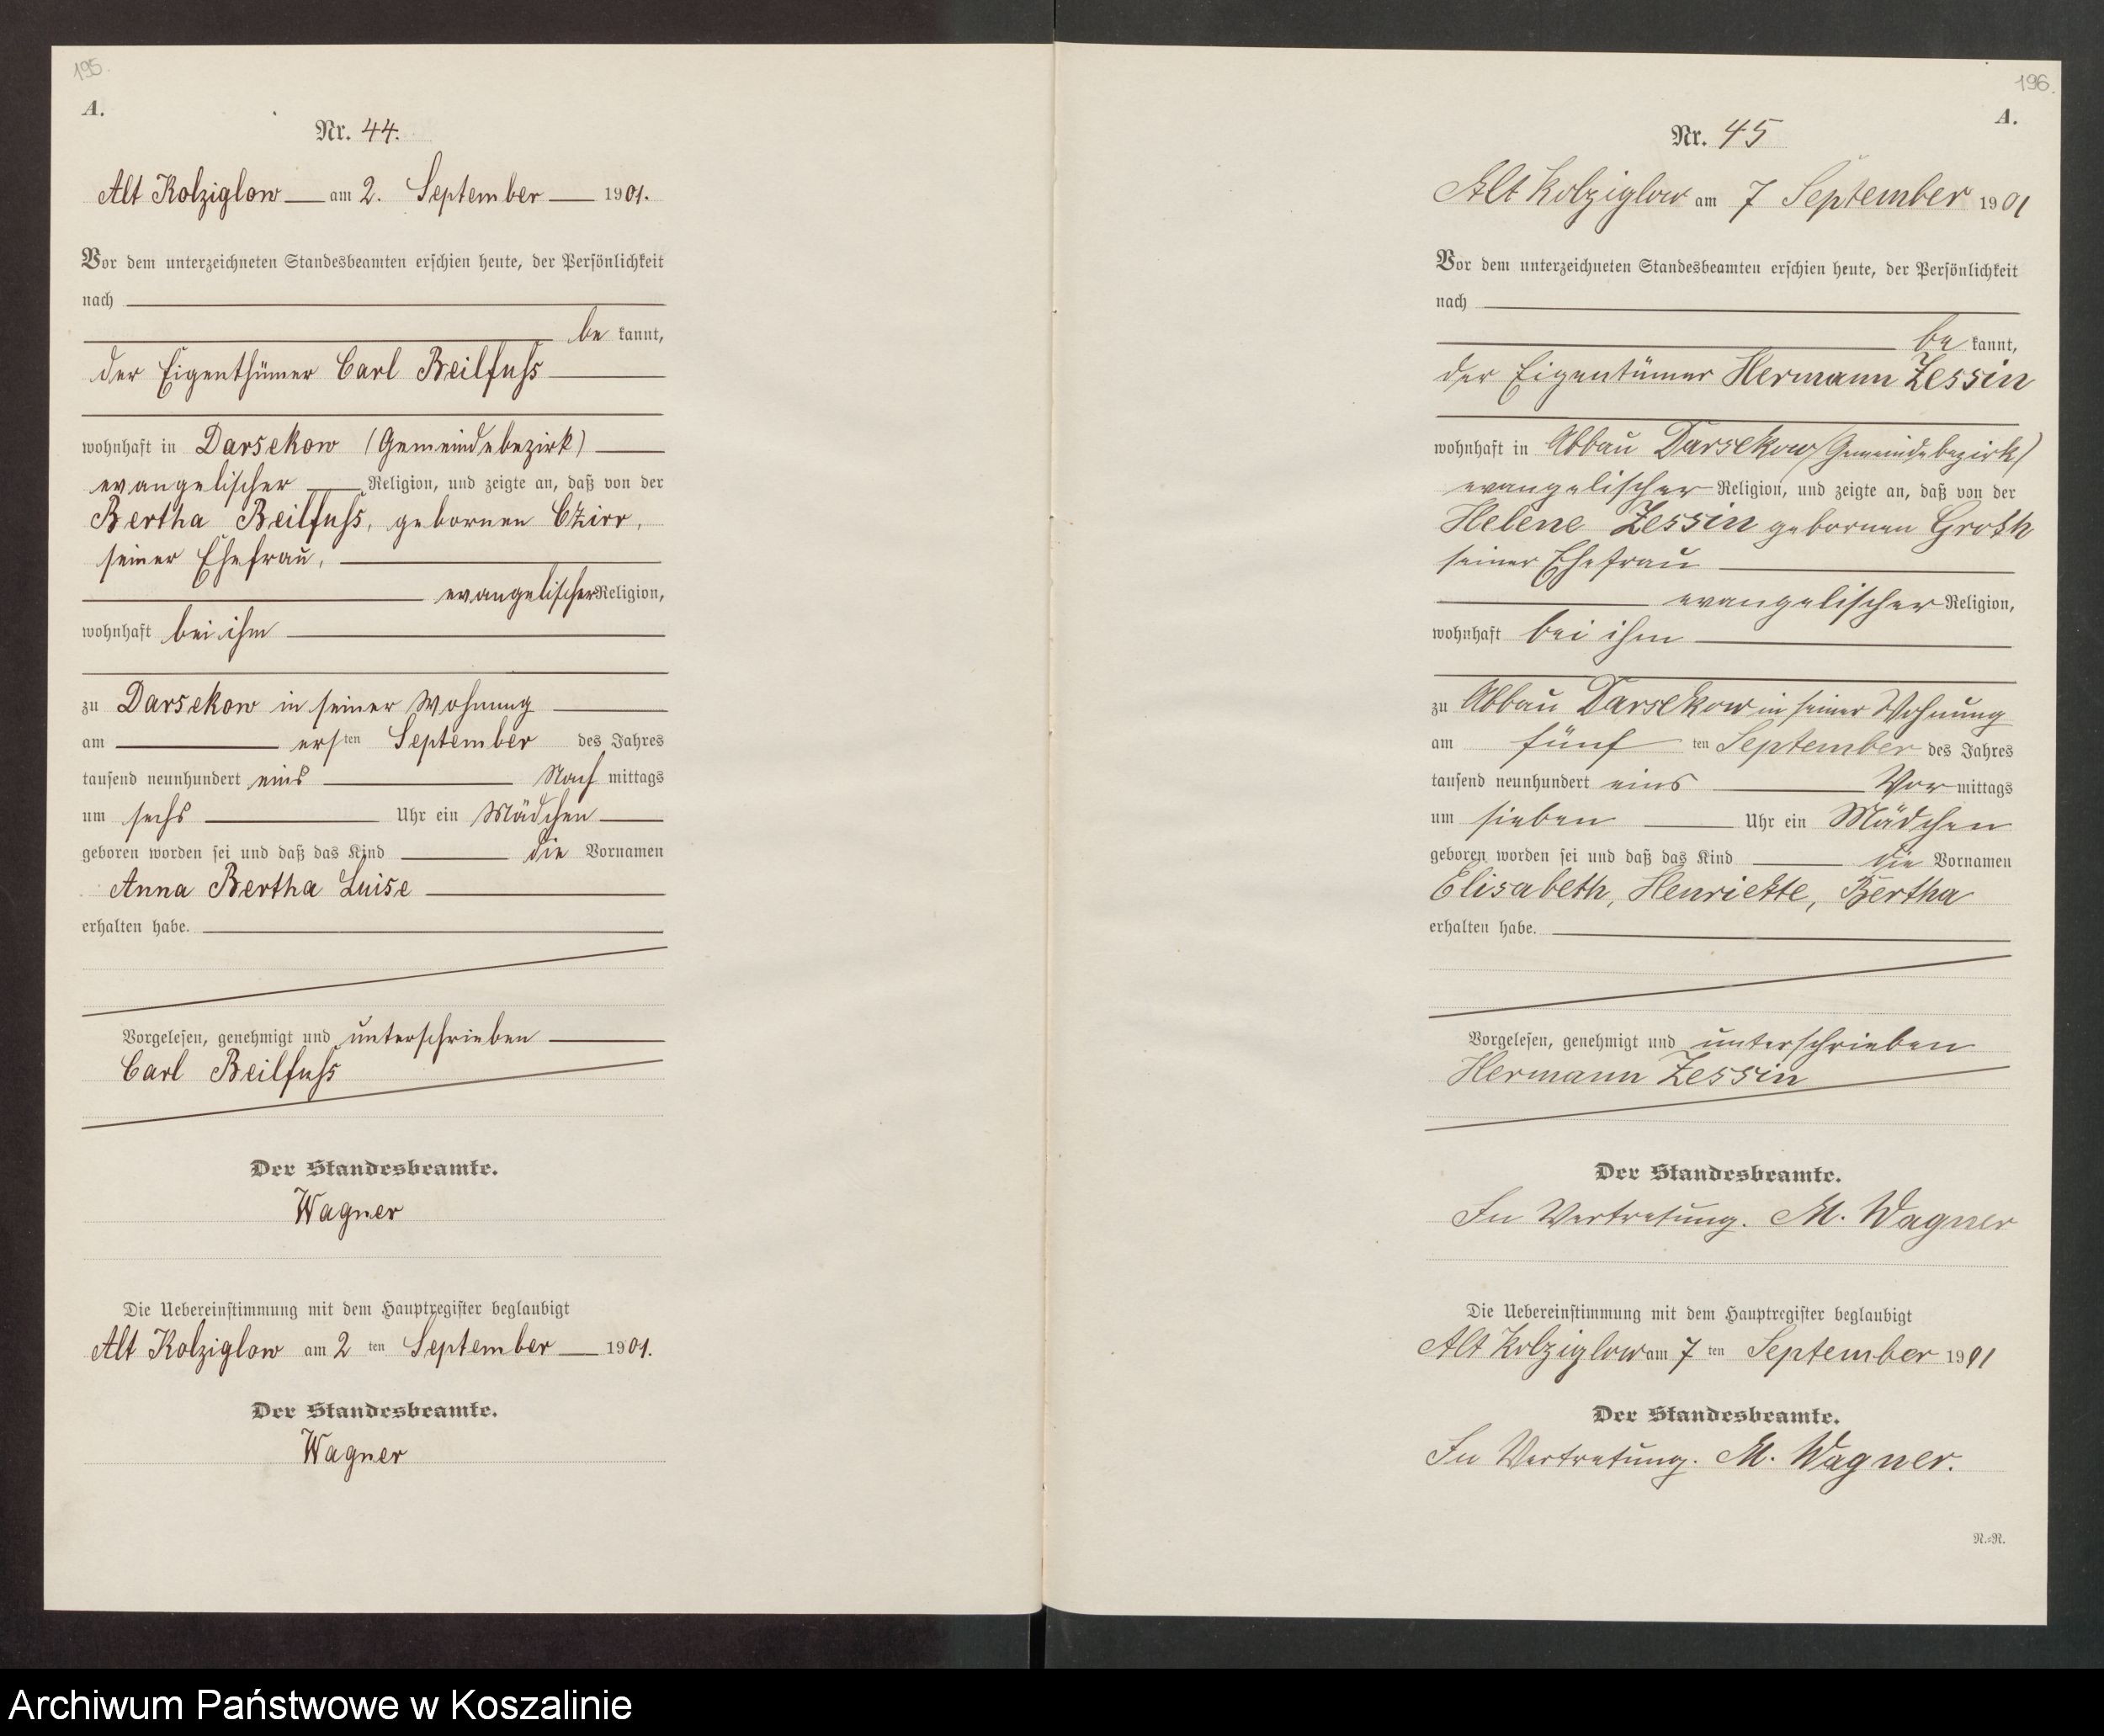 195.
A.
Nr. 44.
Alt Kolziglow am 2. September 1901.
Vor dem unterzeichneten Standesbeamten erschien heute, der Persönlichkeit
nach
be kannt,
der Eigenthümer Carl Beilfuß
wohnhaft in Darsekow (Gemeindebezirk)
evangelischer Religion, und zeigte an, daß von der
Bertha Beilfuß, gebornen Czirr,
seiner Ehefrau,
evangelischer Religion,
wohnhaft bei ihm
zu Darsekow in seiner Wohnung
am ersten September des Jahres
tausend neunhundert eins Nach mittags
um sechs Uhr ein Mädchen
geboren worden sei und daß das Kind die Vornamen
Anna Bertha Luise
erhalten habe.
Vorgelesen, genehmigt und unterschrieben
Carl Beilfuß
Der Standesbeamte.
Wagner
Die Uebereinstimmung mit dem Hauptregister beglaubigt
Alt Kolziglow am 2 ten September 1901.
Der Standesbeamte.
Wagner
196.
A.
Nr. 45
Alt Kolziglow am 7 September 1901
Vor dem unterzeichneten Standesbeamten erschien heute, der Persönlichkeit
nach
be kannt,
der Eigentümer Hermann Zessin
wohnhaft in Abbau Darsekow (Gemeindebezirk)
evangelischer Religion, und zeigte an, daß von der
Helene Zessin gebornen Groth
seiner Ehefrau
evangelischer Religion,
wohnhaft bei ihm
zu Abbau Darsekow in seiner Wohnung
am fünf ten September des Jahres
tausend neunhundert eins Vor mittags
um sieben Uhr ein Mädchen
geboren worden sei und daß das Kind die Vornamen
Elisabeth, Henriette, Bertha
erhalten habe.
Vorgelesen, genehmigt und unterschrieben
Hermann Zessin
Der Standesbeamte.
In Vertretung. M. Wagner
Die Uebereinstimmung mit dem Hauptregister beglaubigt
Alt Kolziglow am 7 ten September 1901
Der Standesbeamte.
In Vertretung. M. Wagner.
N.=N.
Archiwum Państwowe w Koszalinie